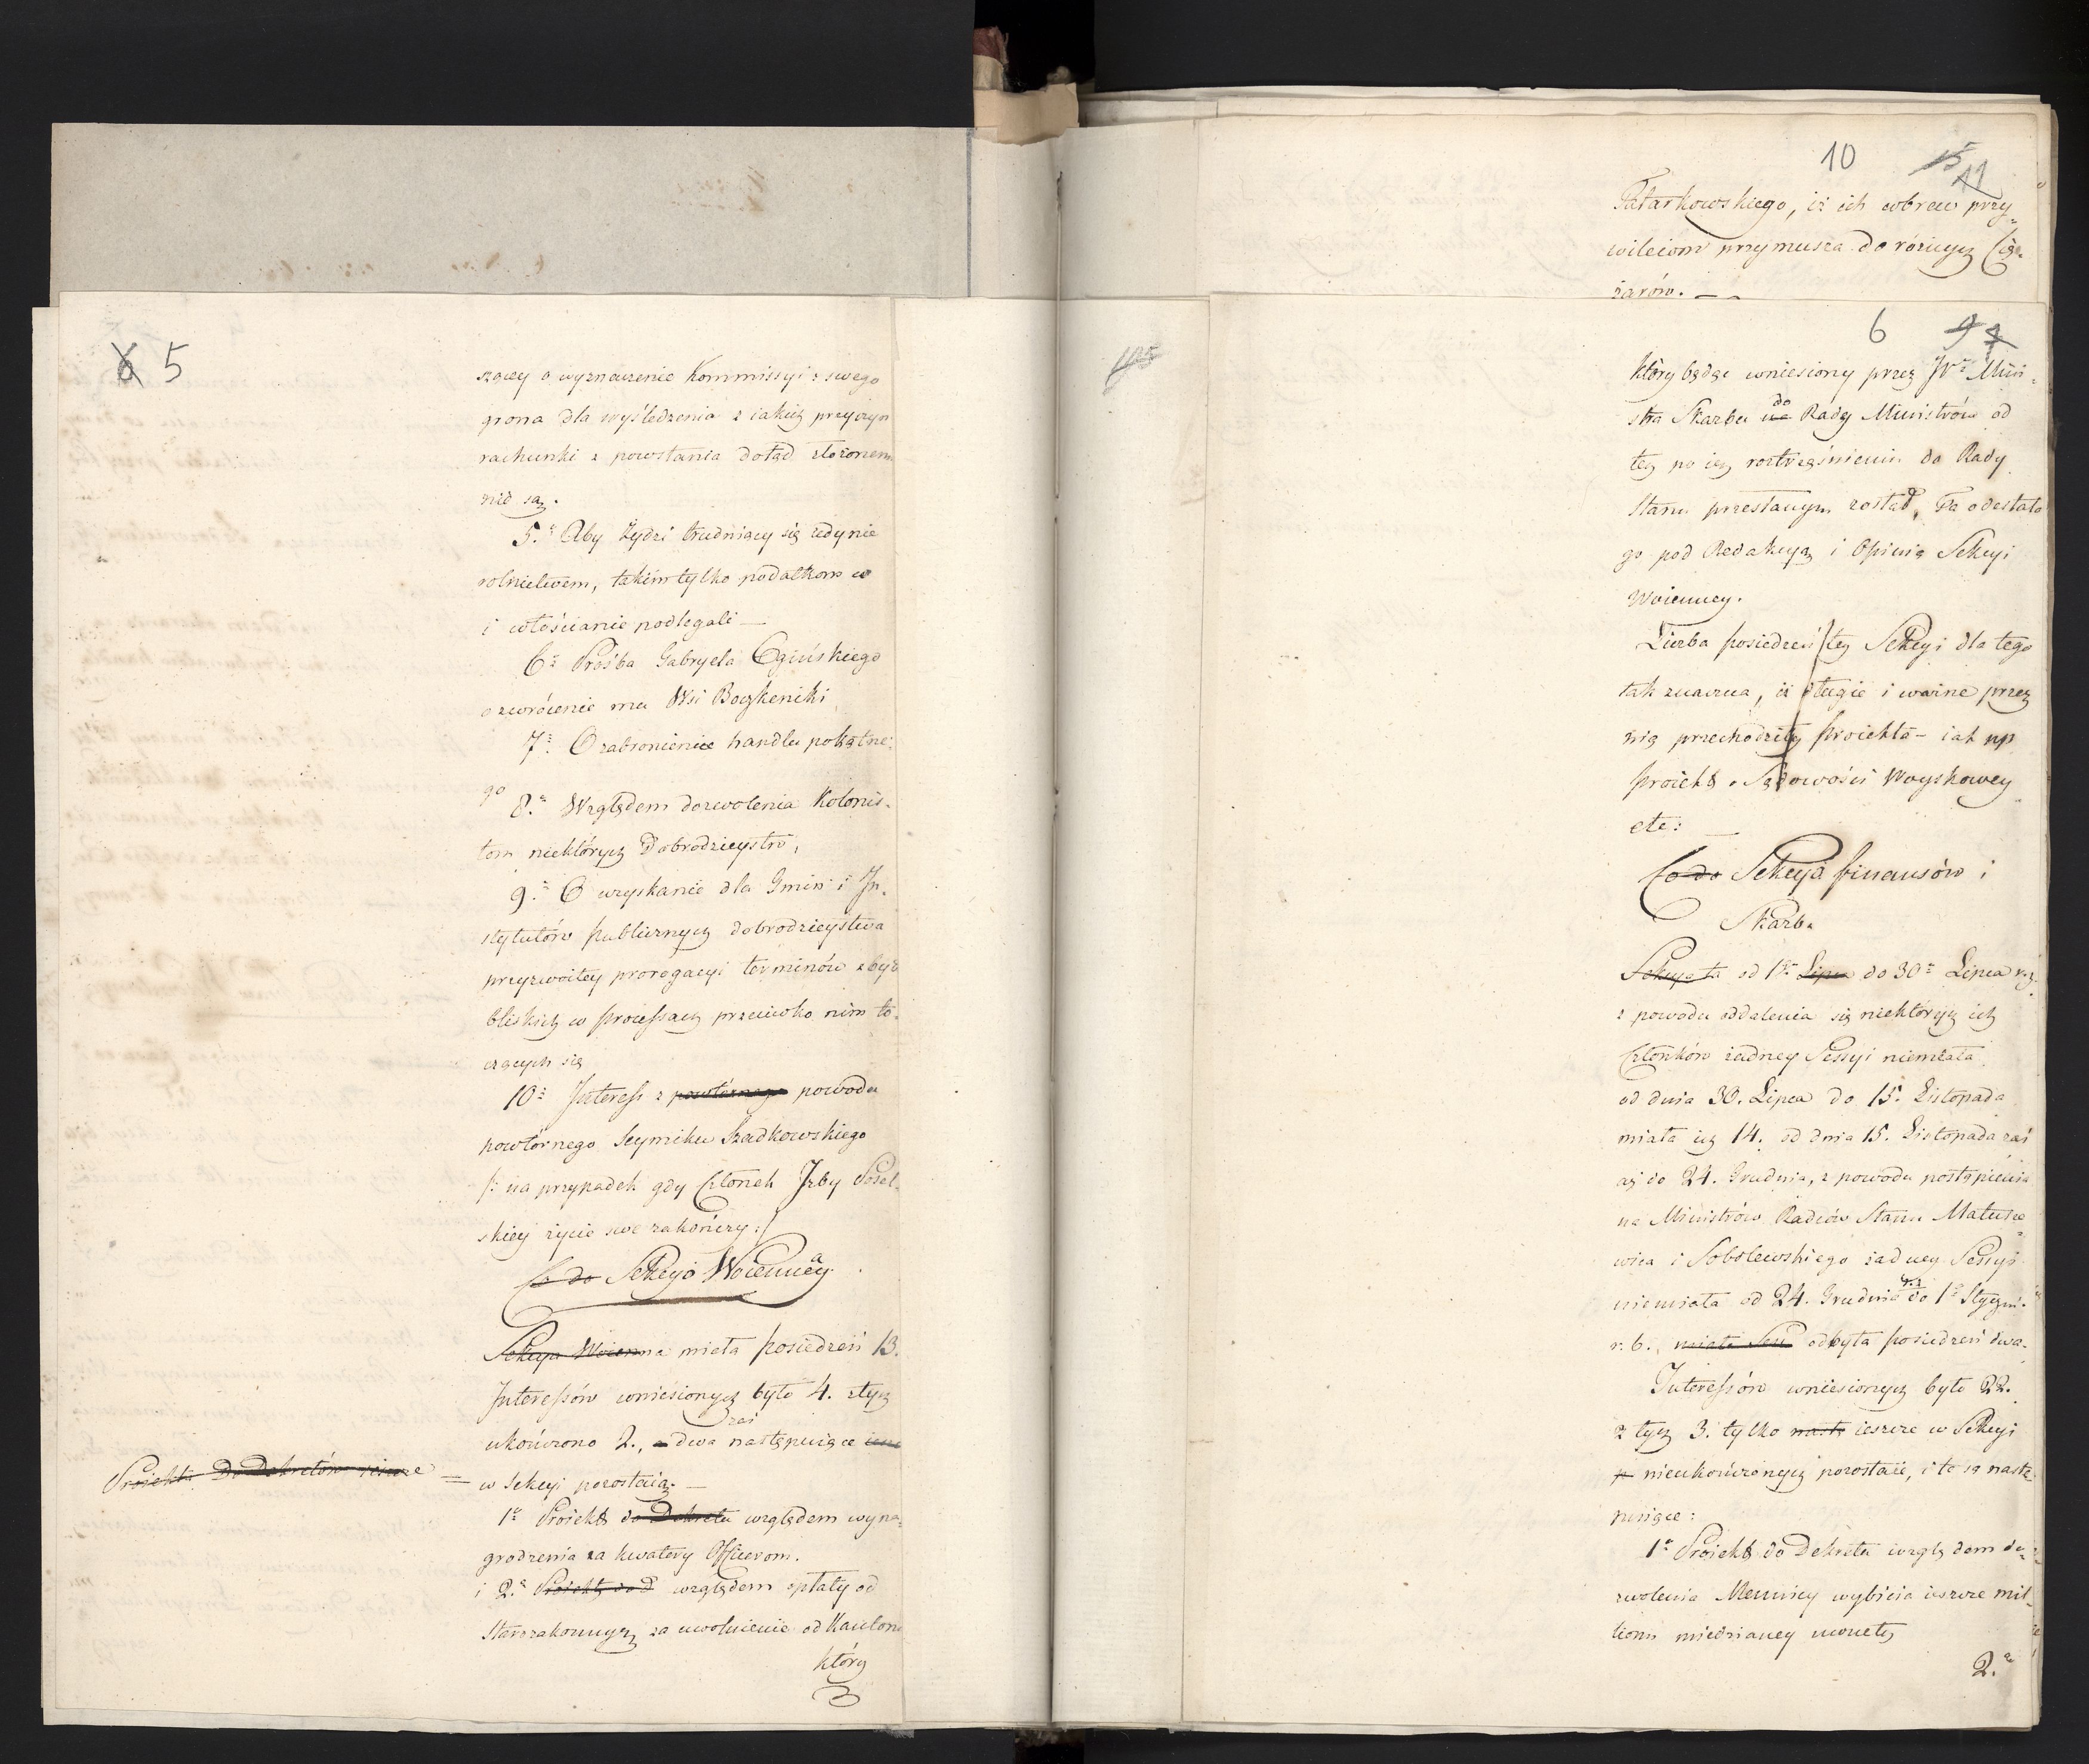 6 5
szącey o wyznaczenie Kommissyi z swego
grona dla wyśledzenia z iakich przyczyn
rachunki z powstania dotąd złożonem
nie są.
5.° Aby Żydzi trudniący się iedynie
rolnictwem, takim tylko podatkom co
i włościanie podlegali —
6° Prośba Gabryela Ogińskiego
o zwrócenie mu Wsi
7° O zabronienie handlu pokątne-
go
8.° Względem dozwolenia Kolonis-
tom niektórych Dobrodzieystw,
9.° O uzyskanie dla Gmin i In-
stytutów publicznych dobrodzieystwa
przyzwoitey prorogacyi terminów zbyt
bliskich w processach przeciwko nim to-
czących się
10° Interess z powtórnego powodu
powtórnego Seymiku Szadkowskiego
/: na przypadek gdy Członek Izby Posel-
skiey życie swe zakończy :/
Co do Sekcyi Woienney a
Sekcya Woienna miała posiedzeń 13.
Interessów wniesionych było 4. z tych
zaś
ukończono 2., a dwa następuiące
Proiekta Do Dekretów =
w Sekcyi pozostaią. —
1° Proiekt do Dekretu względem wyna-
grodzenia za kwatery Officerom.
i 2.° Proiekt do D względem opłaty od
Starozakonnych za uwolnienie od Kanton
który
10 15 11
Tatarkowskiego, iż ich wbrew przy-
wileiom przymusza do różnych Cię-
żarów. —
6
który będąc wniesiony przez JW° Mini-
do
stra Skarbu na Radę Ministrów od
tey po iey roztrząśnieniu do Rady
Stanu przesłanym został, Ta odesłała
go pod Redakcyą i Opinią Sekcyi
Woienney.
Liczba posiedzeń tey Sekcyi dla tego
tak znaczna, iż długie i ważne przez
nią przechodziły proiekta - iak np
proiekt o Sądowości Woyskowey
etc:
Co do Sekcyia finansów i
Skarbu
Sekcya ta od 1° Lipca do 30° Lipca r. z.
z powodu oddalenia się niektórych ich
Członków żadney Sessyi niemiała
od dnia 30. Lipca do 15. Listopada
miała ich 14. od dnia 15. Listopada zaś
aż do 24. Grudnia, z powodu postąpienia
na Ministrów Radców Stanu Matusze-
wica i Sobolewskiego żadney Sessyi
r. z.
niemiała od 24. Grudnia do 1° Stycznia
r. b., miała odbyła posiedzeń dwa.
Interessów wniesionych było 22.
z tych 3. tylko nast ieszcze w Sekcyi
p nieukończonych pozostaie, i te są nastę-
puiące:
1° Proiekt do Dekretu względem do-
zwolenia Mennicy wybicia ieszcze mil-
liona miedzianey monety
2.°